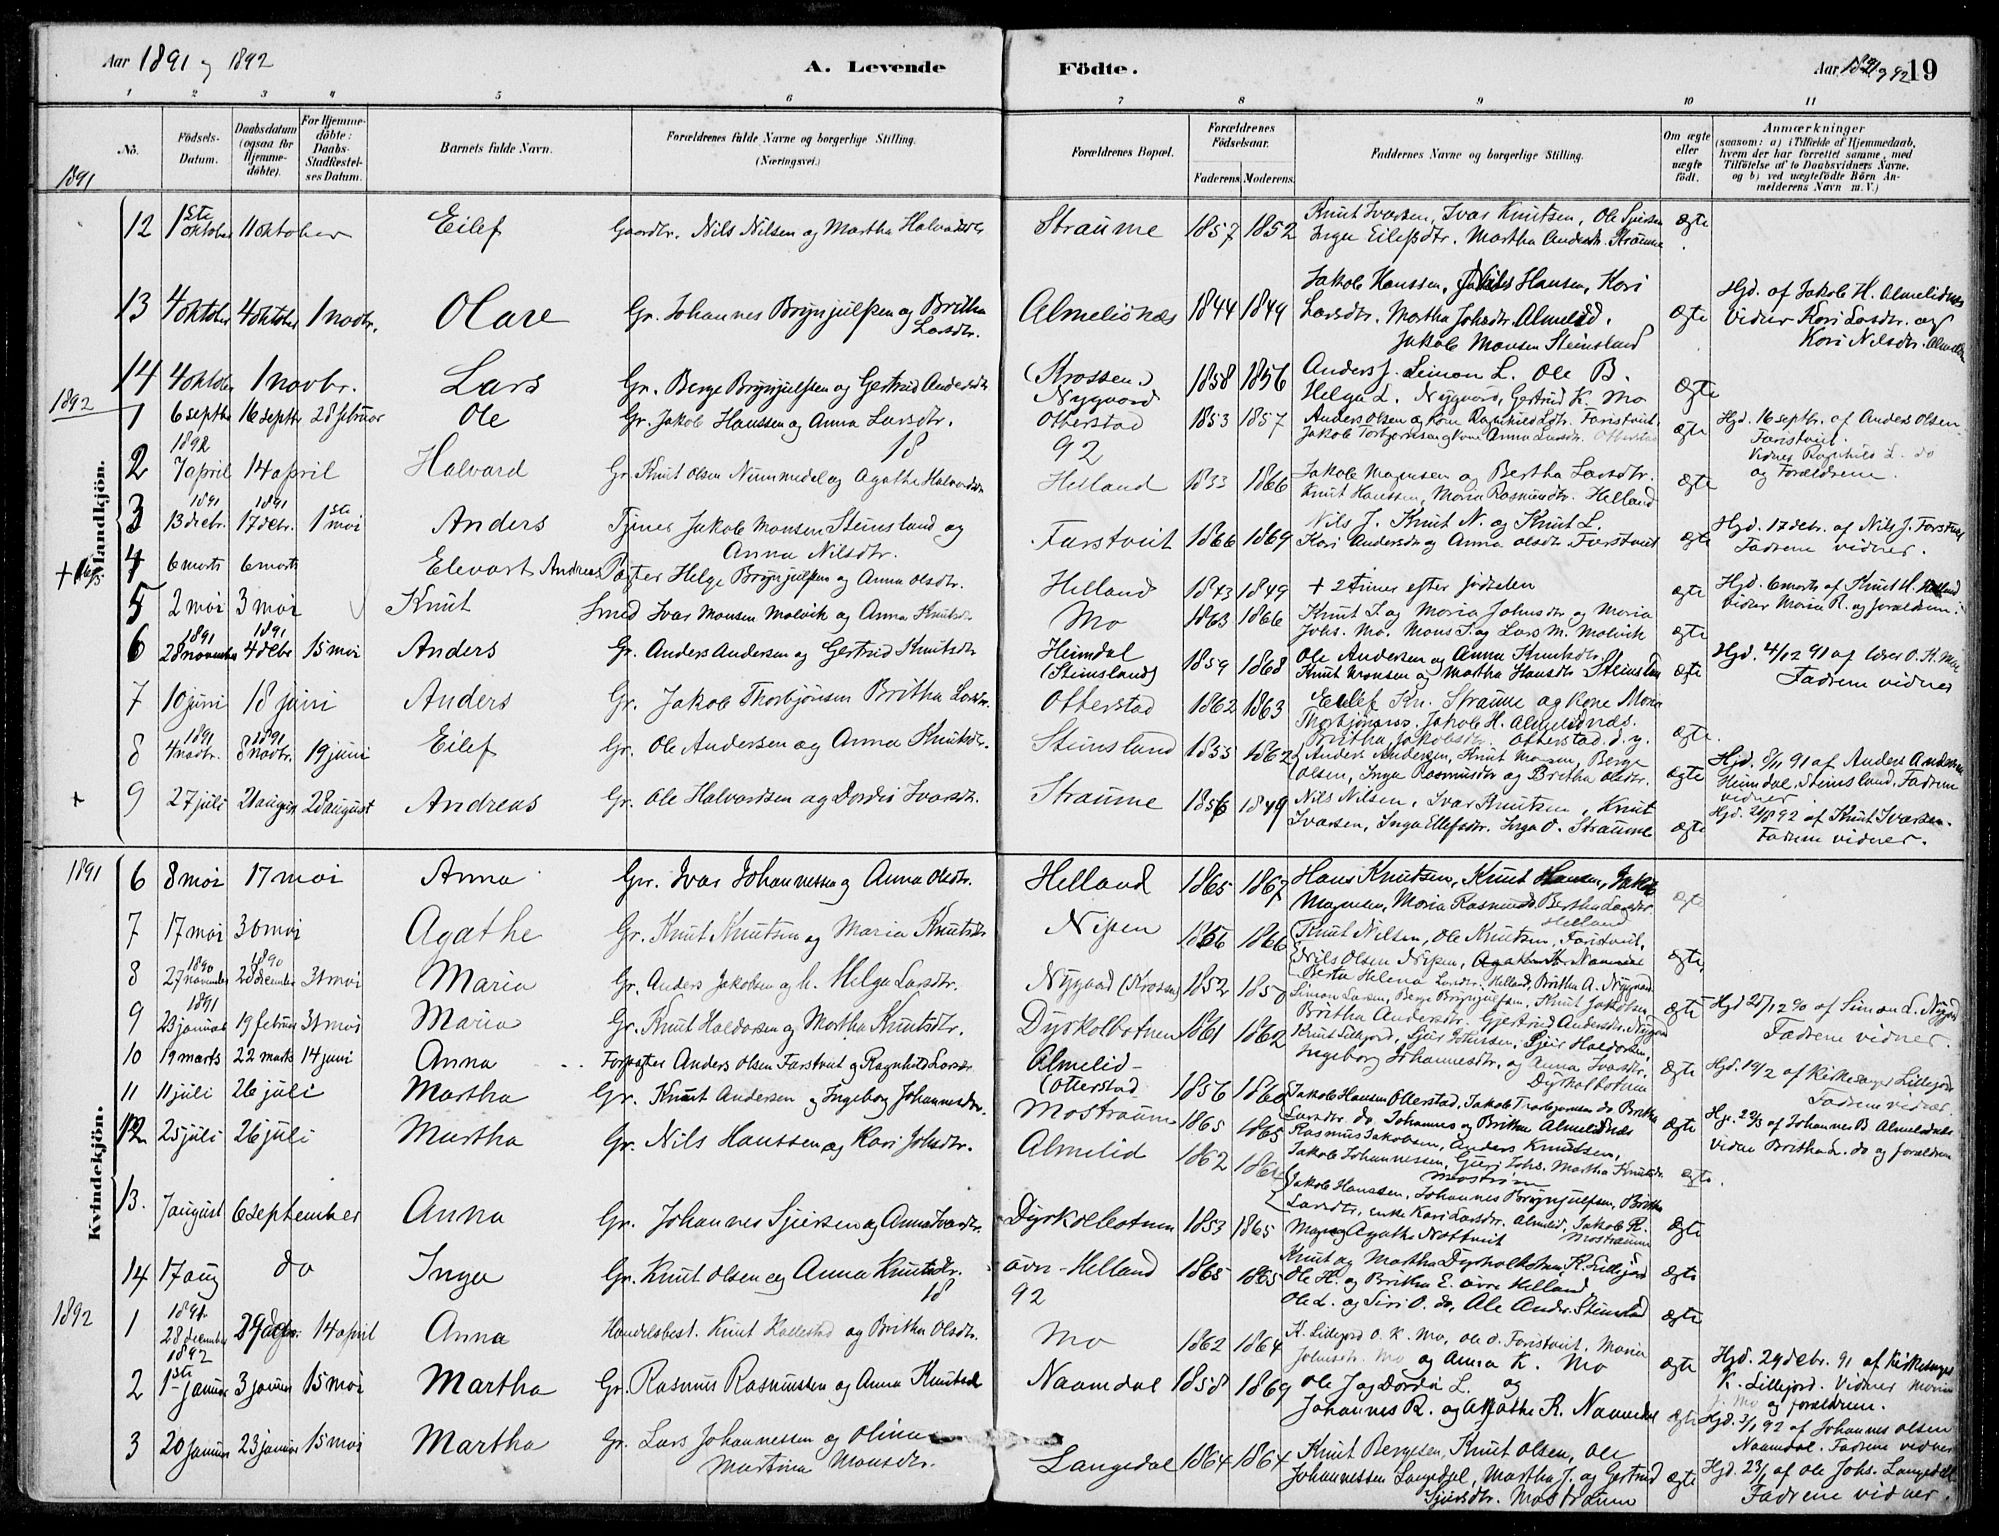 Aar 1891 og 1892
A. Levende Födte.
Aar 1891 og 92 19
1 2 3 4 5 6 7 8 9 10 11
No.
Födsels-Datum.
Daabsdatum (ogsaa for Hjemme-döbte).
For Hjemme-döbte: Daabs-Stadfæstel-ses Datum.
Barnets fulde Navn.
Forældrenes fulde Navne og borgerlige Stilling. (Næringsvei.)
Forældrenes Bopæl.
Forældrenes Födselsaar.
Faderens. Moderens.
Faddernes Navne og borgerlige Stilling.
Om ægte eller uægte födt.
Anmærkninger
(saasom: a) i Tilfælde af Hjemmedaab, hvem der har forrettet samme, med Tilföielse af to Daabsvidners Navne, og b) ved uægtefödte Börn An-melderens Navn m. V.)
1891
Mandkjön.
12 1ste oktober 11 oktober Eilef Gaardbr. Nils Nilsen og Martha Halvardsdtr Straume 1857 1852 Knut Ivarsen, Ivar Knutsen, Ole Sjursen
Inga Eilefsdtr. Martha Andersdtr. Straume ægte
13 4 oktober 4 oktober 1 novbr. Olare Gr. Johannes Brynjulfsen og Britha Larsdtr. Almelidnæs 1844 1849 Jakob Hanssen, Nils Hansen, Kari
Larsdtr. Martha Johsdtr. Almelid.
Jakob Monsen Steinsland ægte
Hjd. af Jakob H. Almelidnæs
Vidner Kari Larsdtr. og
Kari Nilsdtr. Almelid
14 4 oktober 1 novbr. Lars Gr. Berge Brynjulfsen og Gertrud Andersdtr (Krossen) Nygaard 1858 1856 Anders J. Simon L. Ole B.
Helga L. Nygaard, Gertrud K. Mo ægte
1892
1 6 septbr 16 septbr 28 februar Ole Gr. Jakob Hanssen og Anna Larsdtr. Otterstad 1853 1857 Anders Olsen og kone Ragnhild Ldtr. Farstveit.
Jakob Torbjørnsen og kone Anna Larsdtr. Otterstad ægte
Hjd. 16 septbr. af Anders Olsen
Farstveit.
Vidner Ragnhild L. do
og Forældrene.
18 92
1892
2 7 april 14 april Halvard Gr. Knut Olsen Nummedal og Agatha Halvardsdtr Helland 1833 1866 Jakob Magnesen og Bertha Larsdtr.
Knut Hanssen, Maria Rasmusdtr. Helland ægte
3 1891 13 debr. 1891 17 debr. 1ste mai Anders Tjener Jakob Monsen Steinsland og
Anna Nilsdtr. Farstveit 1866 1869 Nils J. Knut N. og Knut L.
Kari Andersdtr og Anna Olsdtr. Farstveit ægte
Hjd. 17 debr. af Nils J. Farstveit
Fadrene vidner.
4 6 marts 6 marts Elevart Andreas Pagter Helge Brynjulfsen og Anna Olsdtr. Helland 1843 1849 + 2 timer efter fødselen ægte
Hjd. 6 marts af Knut H. Helland
Vidner Maria R. og forældrene.
5 2 mai 3 mai Knut Smed Ivar Monsen Molvik og Anna Knutsdtr Mo 1863 1866 Knut L og Maria Johnsdtr og Maria
Johs. Mo. Mons I. og Lars M. Molvik ægte
6 1891 28 november 1891 4 debr 15 mai Anders Gr. Anders Andersen og Gertrud Knutsdtr Heimdal (Steinsland) 1859 1868 Ole Andersen og Anna Knutsdtr.
Knut Monsen og Martha Hansdtr Steinsland ægte
Hjd. 4/12 91 af lærer O. K. Mo
Fadrene vidner
7 10 juni 18 juni Anders Gr. Jakob Thorbjønsen Britha Larsdtr. Otterstad 1862 1863 Eilef Kn. Straume og kone Maria
Thorbjønsens. Jakob H. Almelidnæs.
Britha Jakobsdtr. Otterstad. d. y. ægte.
8 1891 4 novbr. 1891 8 novbr. 19 juni Eilef Gr. Ole Andersen og Anna Knutsdtr. Steinsland 1855 1862 Anders Andersen, Knut Monsen, Berge
Olsen, Inga Rasmusdtr og Bretha Olsdtr. ægte
Hjd. 8/11 91 af Anders Andersen
Heimdal, Steinsland, Fadrene
vidner.
+ 9 27 juli 21 august 28 august Andreas Gr. Ole Halvardsen og Dordei Ivarsdtr. Straume 1856 1849 Nils Nilsen, Ivar Knutsen, Knut
Ivarsen, Inga Ellefsdtr. Inga O. Straume ægte
Hjd. 21/8 92 af Knut Ivarsen.
Fadrene vidner.
1891
Kvindekjön.
6 8 mai 17 mai Anna Gr. Ivar Johannessen og Anna Olsdtr. Helland 1865 1867 Hans Knutsen, Knut Hansen, Jakob
Magnesen, Maria Rasmusd. Bertha Larsdtr.
Helland ægte
7 17 mai 30 mai Agathe Gr. Knut Knutsen og Maria Knutsdtr Nipen 1866 1866 Knut Nilsen, Ole Knutsen, Farstveit,
Nils Olsen Nipen, Agatha K. Namdal
Berta Helena Larsdtr. Helland, Britha A. Nygaard ægte,
8 1890 27 november 1890 28 december 31 mai Maria Gr. Anders Jakobsen og h. Helga Larsdtr. Nygaard (Krossen) 1852 1850 Simon Larsen, Berge Brynjulfsen, Knut Jakobsen,
Britha Andersdtr. Gjertrud Andersdtr. Nygaard ægte
Hjd 28/12 90 af Simon L. Nygaard
Fadrene vidner.
9 1891 23 januar 19 februar 31 mai Maria Gr. Knut Haldorsen og Martha Knutsdtr. Dyrkolbotnen 1861 1862 Knut Lillejord, Sjur Johnsen, Sjur Haldorsen,
Ingeborg Johannesdtr. og Anna Ivarsdtr.
Dyrkolbotnen ægte
Hjd. 19/2 af Kirkesanger Lillejord
Fadrene vidner.
10 19 marts 22 marts 14 juni Anna Forpagter Anders Olsen Farstveit og Ragnhild Larsdtr. Almelid-(Otterstad 1856 1860 Jakob Hansen Otterstad, Jakob Torbjørnsen do Britha
Larsdtr. do, Johannes og Britha Almelidnæs ægte
Hj. 22/3 af Johannes B. Almelidnæs
Vidne Britha L. do og forældrene
11 11 juli 26 juli Martha Gr. Knut Andersen og Ingeborg Johannesdtr. Mostraum 1865 1865 Rasmus Jakobsen, Anders Knutsen,
Jakob Johannessen, Guri Johs. Martha Knutsdtr.
Mostrøm ægte.
12 25 juli 26 juli Martha Gr. Nils Hanssen og Kari Johsdtr. Almelid 1862 1864 Jakob Hanssen, Johannes Brynjulfsen, Britha
Larsdtr., enke Kari Larsdtr. Almelid, Jakob R.
Mostraum
13. 7 august 6 september Anna Gr. Johannes Sjursen og Anna Ivarsdtr. Dyrkolbotnen 1853 1865 Agatha Nottveit ægte
14 17 aug do Inga Gr. Knut Olsen og Anna Knutsdtr. øvre Helland 1865 1865 Knut og Martha Dyrkolbotnen, K. Lillejord
Ole H. og Britha E. øvre Helland ægte
18 92
1892
1 1891 28 december 29 debr. 14 april Anna Handelsbest. Knut Kallestad og Britha Olsdtr. Mo 1862 1864 Ole L. og Siri O. do, Ole Anders. Steinsland
K. Lillejord O. K. Mo, Ole O. Farstveit. Maria
Johnsdtr. Mo og Anna K. Mo ægte
Hjd. 29 debr. 91 af Kirkesanger
K. Lillejord. Vidner Maria
J. Mo og forældrene.
2 1892 1ste januar 3 januar 15 mai Martha Gr. Rasmus Rasmussen og Anna Knutsd Naamdal 1858 1869 Ole J og Dordei L. og
Johannes R. og Agathe K. Naamdal ægte
Hjd. 3/1 92 af Johannes Olsen
Naamdal. Fadrene vidner
3 20 januar 23 januar 15 mai Martha Gr. Lars Johannessen og Olina
Martina Monsdtr. Langedal 1864 1864 Knut Bergesen, Knut Olsen, Ole
Johannessen Langedal, Martha J. og Gertrud
Sjursdtr. Mostraum ægte
Hjd. 23/1 af Ole Johs. Langedal
Fadrene vidner.